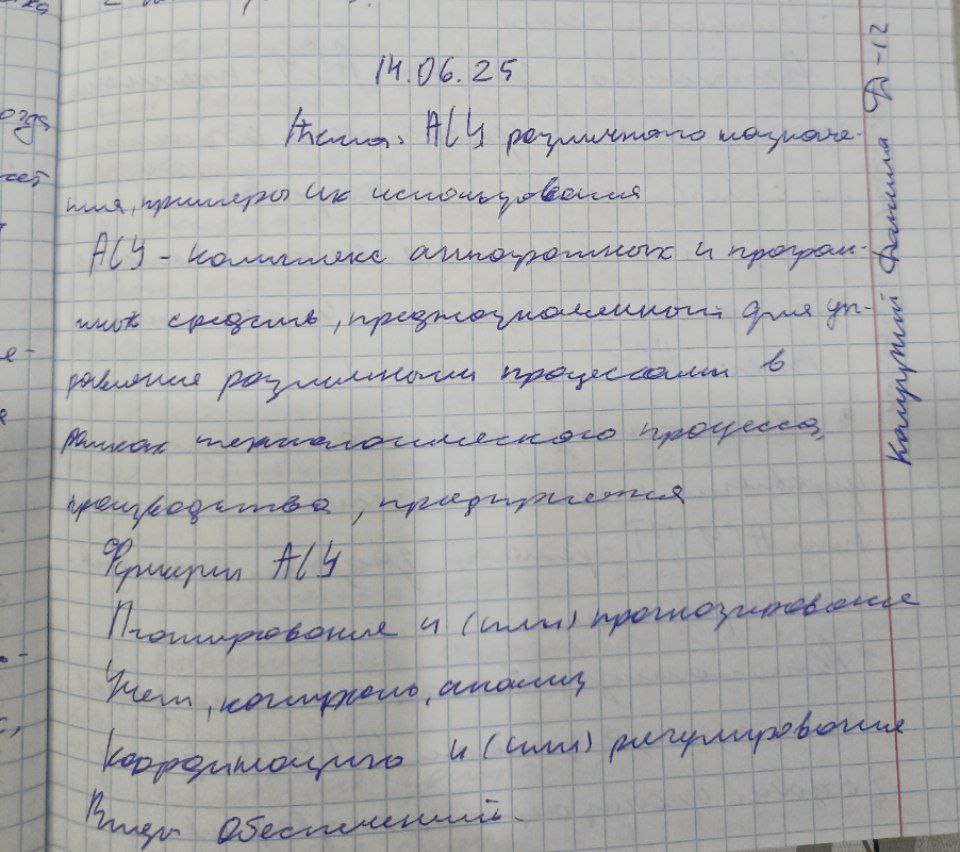 14.06.25
Тема: АСУ различного назначе-
ния, примеры их использования
АСУ - комплекс аппаратных и програм-
мных средств, предназначенный для уп-
равления различными процессами в
рамках технологического процесса,
производства, предприятия
Функции АСУ
Планирование и (или) прогнозирование
Учет, контроль, анализ
Координацию и (или) регулирование
Виды обеспечений.
Данила Д-12